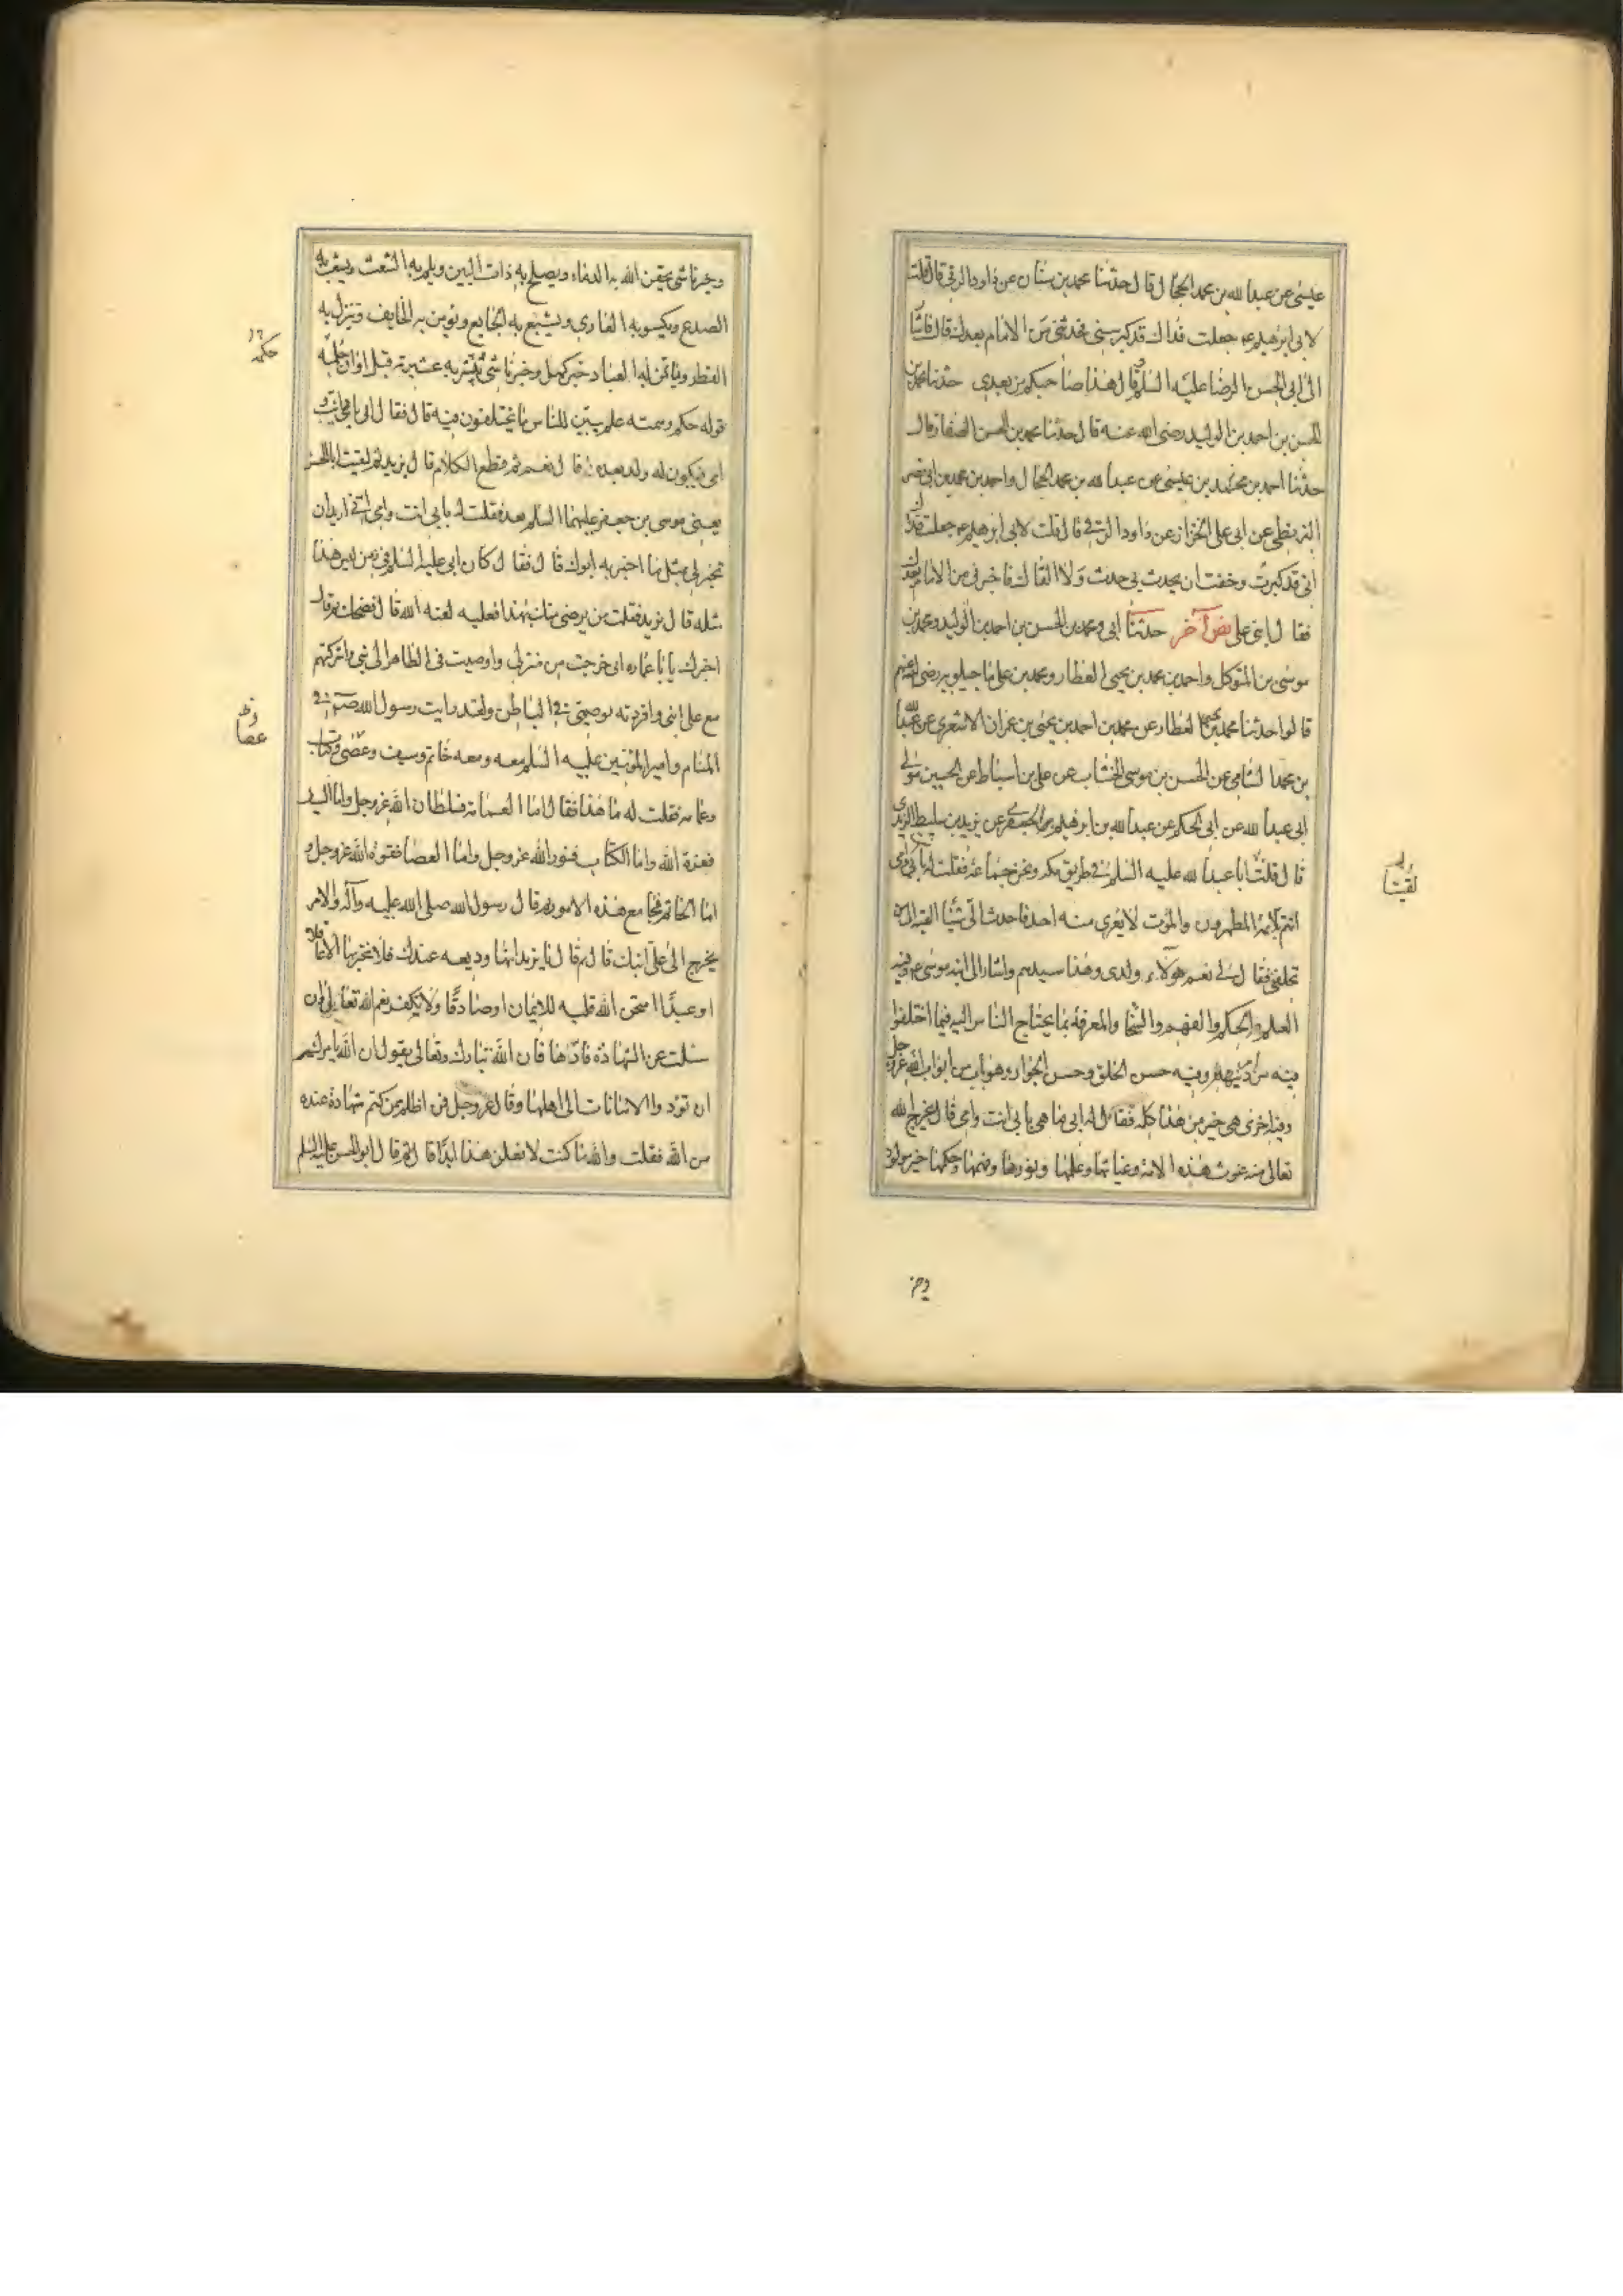 عيسى عن عبدا لله بن محمد الحجا ل قا ل حدثنا محمد بن سنان عن داود الرقي قال قلت
لابي ابرهيم ع جعلت فداك قد كبر سني فحدثني من الامام بعدك قال فاشا
الى ابي الحسن الرضا عليه السلم وقا ل هذا صاحبكم من بعدي حدثنا محمد بن
الحسن بن احمد بن الوليد رضى الله عنه قا ل حدثنا محمد بن الحسن الصفار قال
حدثنا احمد بن محمد بن عيسى عن عبدا لله بن محمد الحجا ل واحمد بن محمد بن ابي نصر
البزنطي عن ابى على الخزاز عن داود الرقي قا ل قلت لابى ابرهيم ع جعلت فداك
انى قد كبرت وخفت ان يحدث بي حدث ولا القاك فاخبرني من الامام بعدك
فقا ل ابنى على نص آخر حدثنا ابي ومحمد بن الحسن بن احمد بن الوليد ومحمد بن
موسى بن المتوكل واحمد بن محمد بن يحيى العطار ومحمد بن على ماجيلويه رضى الله عنهم
قا لوا حدثنا محمد بن يحيى العطار عن محمد بن احمد بن يحيى بن عمران الاشعري عن عبدالله
بن محمد الشامي عن الحسن بن موسى الخشاب عن على بن اسباط عن الحسين مولى
ابى عبدا لله عن ابي الحكم عن عبدا لله بن ابرهيم الجعفري عن يزيد بن سليط الزيدي
قا ل قلت ابا عبدا لله عليه السلم في طريق مكه ونحن جماعة فقلت له بابي وامي
انتم الائمة المطهرون والموت لا يعرى منه احد فاحدث الي شيئا القيه الى من
تخلفني فقا ل لي نعم هولاء ولدى وهذا سيدهم واشار الى ابنه موسى ع وفيه
العلم والحكم والفهم والسخا والمعرفة بما يحتاج الناس اليه فيما اختلفوا
فيه من امر دينهم وفيه حسن الخلق وحسن الجوار وهو باب من ابواب الله عز وجل
وفيه اخرى هى خير من هذا كله فقا ل له ابى ما هى بابى انت وامى قا ل يخرج الله
تعالى منه غوث هذه الامة وغياثها وعلمها ونورها وفهمها وحكمها خير مولود
لقيت
وخير
وخير ناشى يحقن الله به الدماء ويصلح به ذات البين ويلم به الشعث ويشعب به
الصدع ويكسو به العاري ويشبع به الجايع ويومن به الخايف وينزل به
القطر ويأتمر له العباد خير كهل وخير ناشى يبشر به عشيرته قبل اوان حلمه
قوله حكم وصمته علم يبين للناس ما يختلفون فيه قا ل فقا ل ابى بابى انت و
امى فيكون له ولد بعده قا ل نعم ثم قطع الكلام قا ل يزيد ثم لقيت ابا الحسن
يعنى موسى بن جعفر عليهما السلم بعد فقلت له بابي انت وامى انى اريد ان
تخبرني بمثل ما اخبر به ابوك قا ل فقا ل كان ابي عليه السلم في زمن ليس هذا
مثله قا ل يزيد فقلت من يرضى منك بهذا فعليه لعنه الله قا ل فضحك ثم قال
اخبرك يا با عماره انى خرجت من منزلى واوصيت في الظاهر الى بنى واشركتهم
مع على ابنى وافردته بوصيتى في الباطن ولقد رايت رسول الله ص في
المنام وامير المؤمنين عليه السلم معه ومعه خاتم وسيف وعصى وكتاب
وعمامه فقلت له ما هذا فقا ل اما العمامه فسلطان الله عز وجل واما السيف
فعزة الله واما الكتاب فنور الله عز وجل واما العصا فقوة الله عز وجل و
اما الخاتم فجامع هذه الامور ثم قا ل رسول الله صلى الله عليه وآله والامر
يخرج الى على ابنك قا ل ثم قا ل يا يزيد انها وديعه عندك فلا تخبر بها الا عاقلا
او عبدًا امتحن الله قلبه للايمان او صادقًا ولا تكفر نعم الله تعالى وان
سئلت عن الشهادة فادّها فان الله تبارك وتعالى يقول ان الله يامركم
ان تؤدوا الامانات الى اهلها وقا ل عز وجل فمن اظلم ممن كتم شهادة عنده
من الله فقلت والله ما كنت لافعل هذا ابدًا قا ل ثم قا ل ابو الحسن عليه السلم
حكمه
عصا